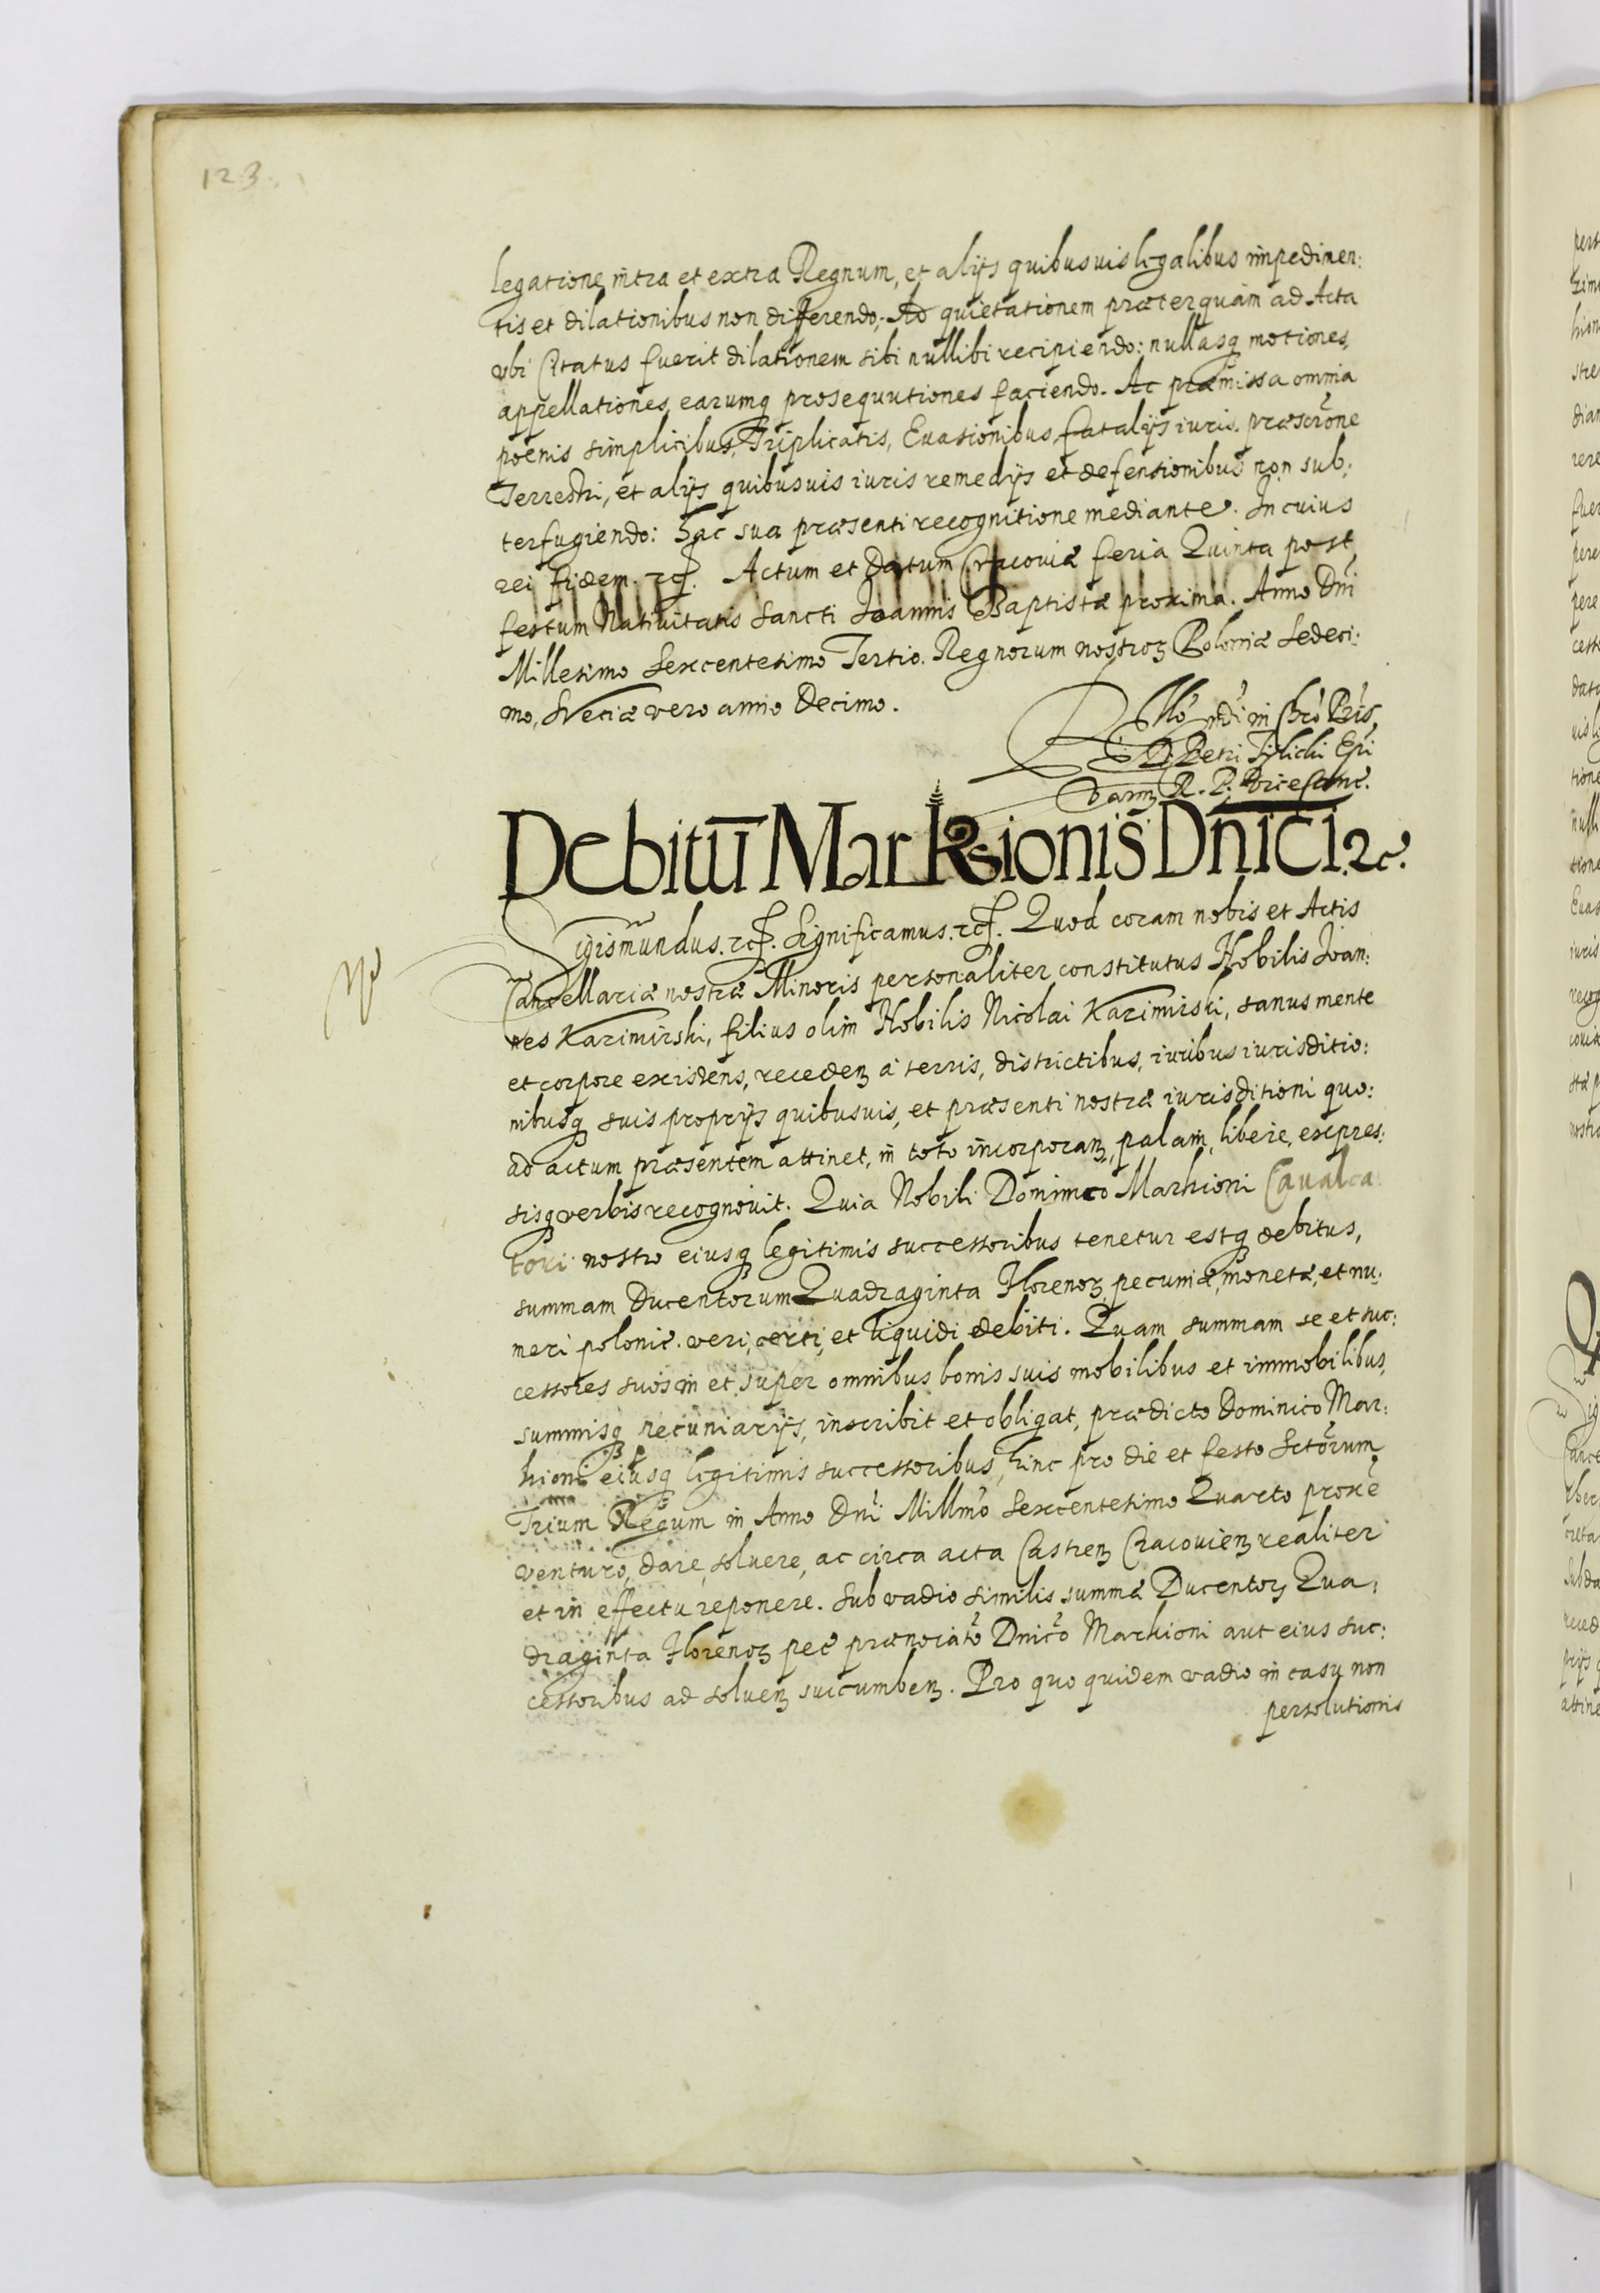 123.
legatione intra et extra Regnum, et alijs quibusuis legalibus impedimen:
tis et dilationibus non differendo, Ad quietationem præterquam ad Acta
vbi Citatus fuerit dilationem sibi nullibi recipiendo: nullasq motiones,
appellationes, earumq prosequutiones faciendo. Ac præmissa omnia
poenis simplicibus, Triplicatis, Euasionibus, fatalijs iuris. præscrõne
Terrestri, et alijs quibusuis iuris remedijs et defensionibus non sub:
terfugiendo: Hac sua præsenti recognitione mediante. In cuius
rei fidem. rcȷ. Actum et Datum Cracouiæ feria Quinta post
festum Natiuitatis Sancti Joannis Baptistæ proxima. Anno Dnĩ
Millesimo Sexcentesimo Tertio. Regnorum nostroꝝ Poloniæ Sedeci:
mo, Sveciæ vero anno Decimo.
Rlõ indi in Chrõ Prĩs,
D. Petri Tylicki Epi
R. P. Vicecanc.
Debitũ Markionis Dñici. 2c.
Sigismundus. rcȷ. Significamus. rcȷ. Quod coram nobis et Actis
Cancellariæ nostræ Minoris personaliter constitutus Nobilis Joan:
nes Kazimirski, filius olim Nobilis Nicolai Kazimirski, sanus mente
et corpore existens, recedeñ a terris, districtibus, iuribus iurisditio:
nibusq suis proprijs quibusuis, et præsenti nostræ iurisditioni quo:
ad actum præsentem attinet, in toto incorporañ, palam, libere, expres:
sisq verbis recognouit. Quia Nobili Dominico Markioni Caualca
tori nostro eiusq legitimis successoribus tenetur estq debitus,
summam Ducentorum Quadraginta Florenoꝝ, pecuniæ, monetæ, et nu:
meri polonic. veri, certi, et liquidi debiti. Quam summam se et suc:
cessores suos in et super omnibus bonis suis mobilibus et immobilibus,
summisq pecuniarijs, inscribit et obligat, prædicto Dominico Mar:
kioni eiusq legitimis successoribus, hinc pro die et festo Sctõrum
Trium Regum in Anno Dnĩ Millmõ Sexcentesimo Quarto proxẽ
venturo, dare, soluere, ac circa acta Castreñ Cracouieñ realiter
et in effectu reponere. Sub vadio similis summæ Ducentoꝝ Qua:
draginta Florenoꝝ pec prænoiatõ Dnicõ Markioni aut eius suc:
cessoribus ad solueñ succumbeñ. Pro quo quidem vadio in casu non
persolutionis